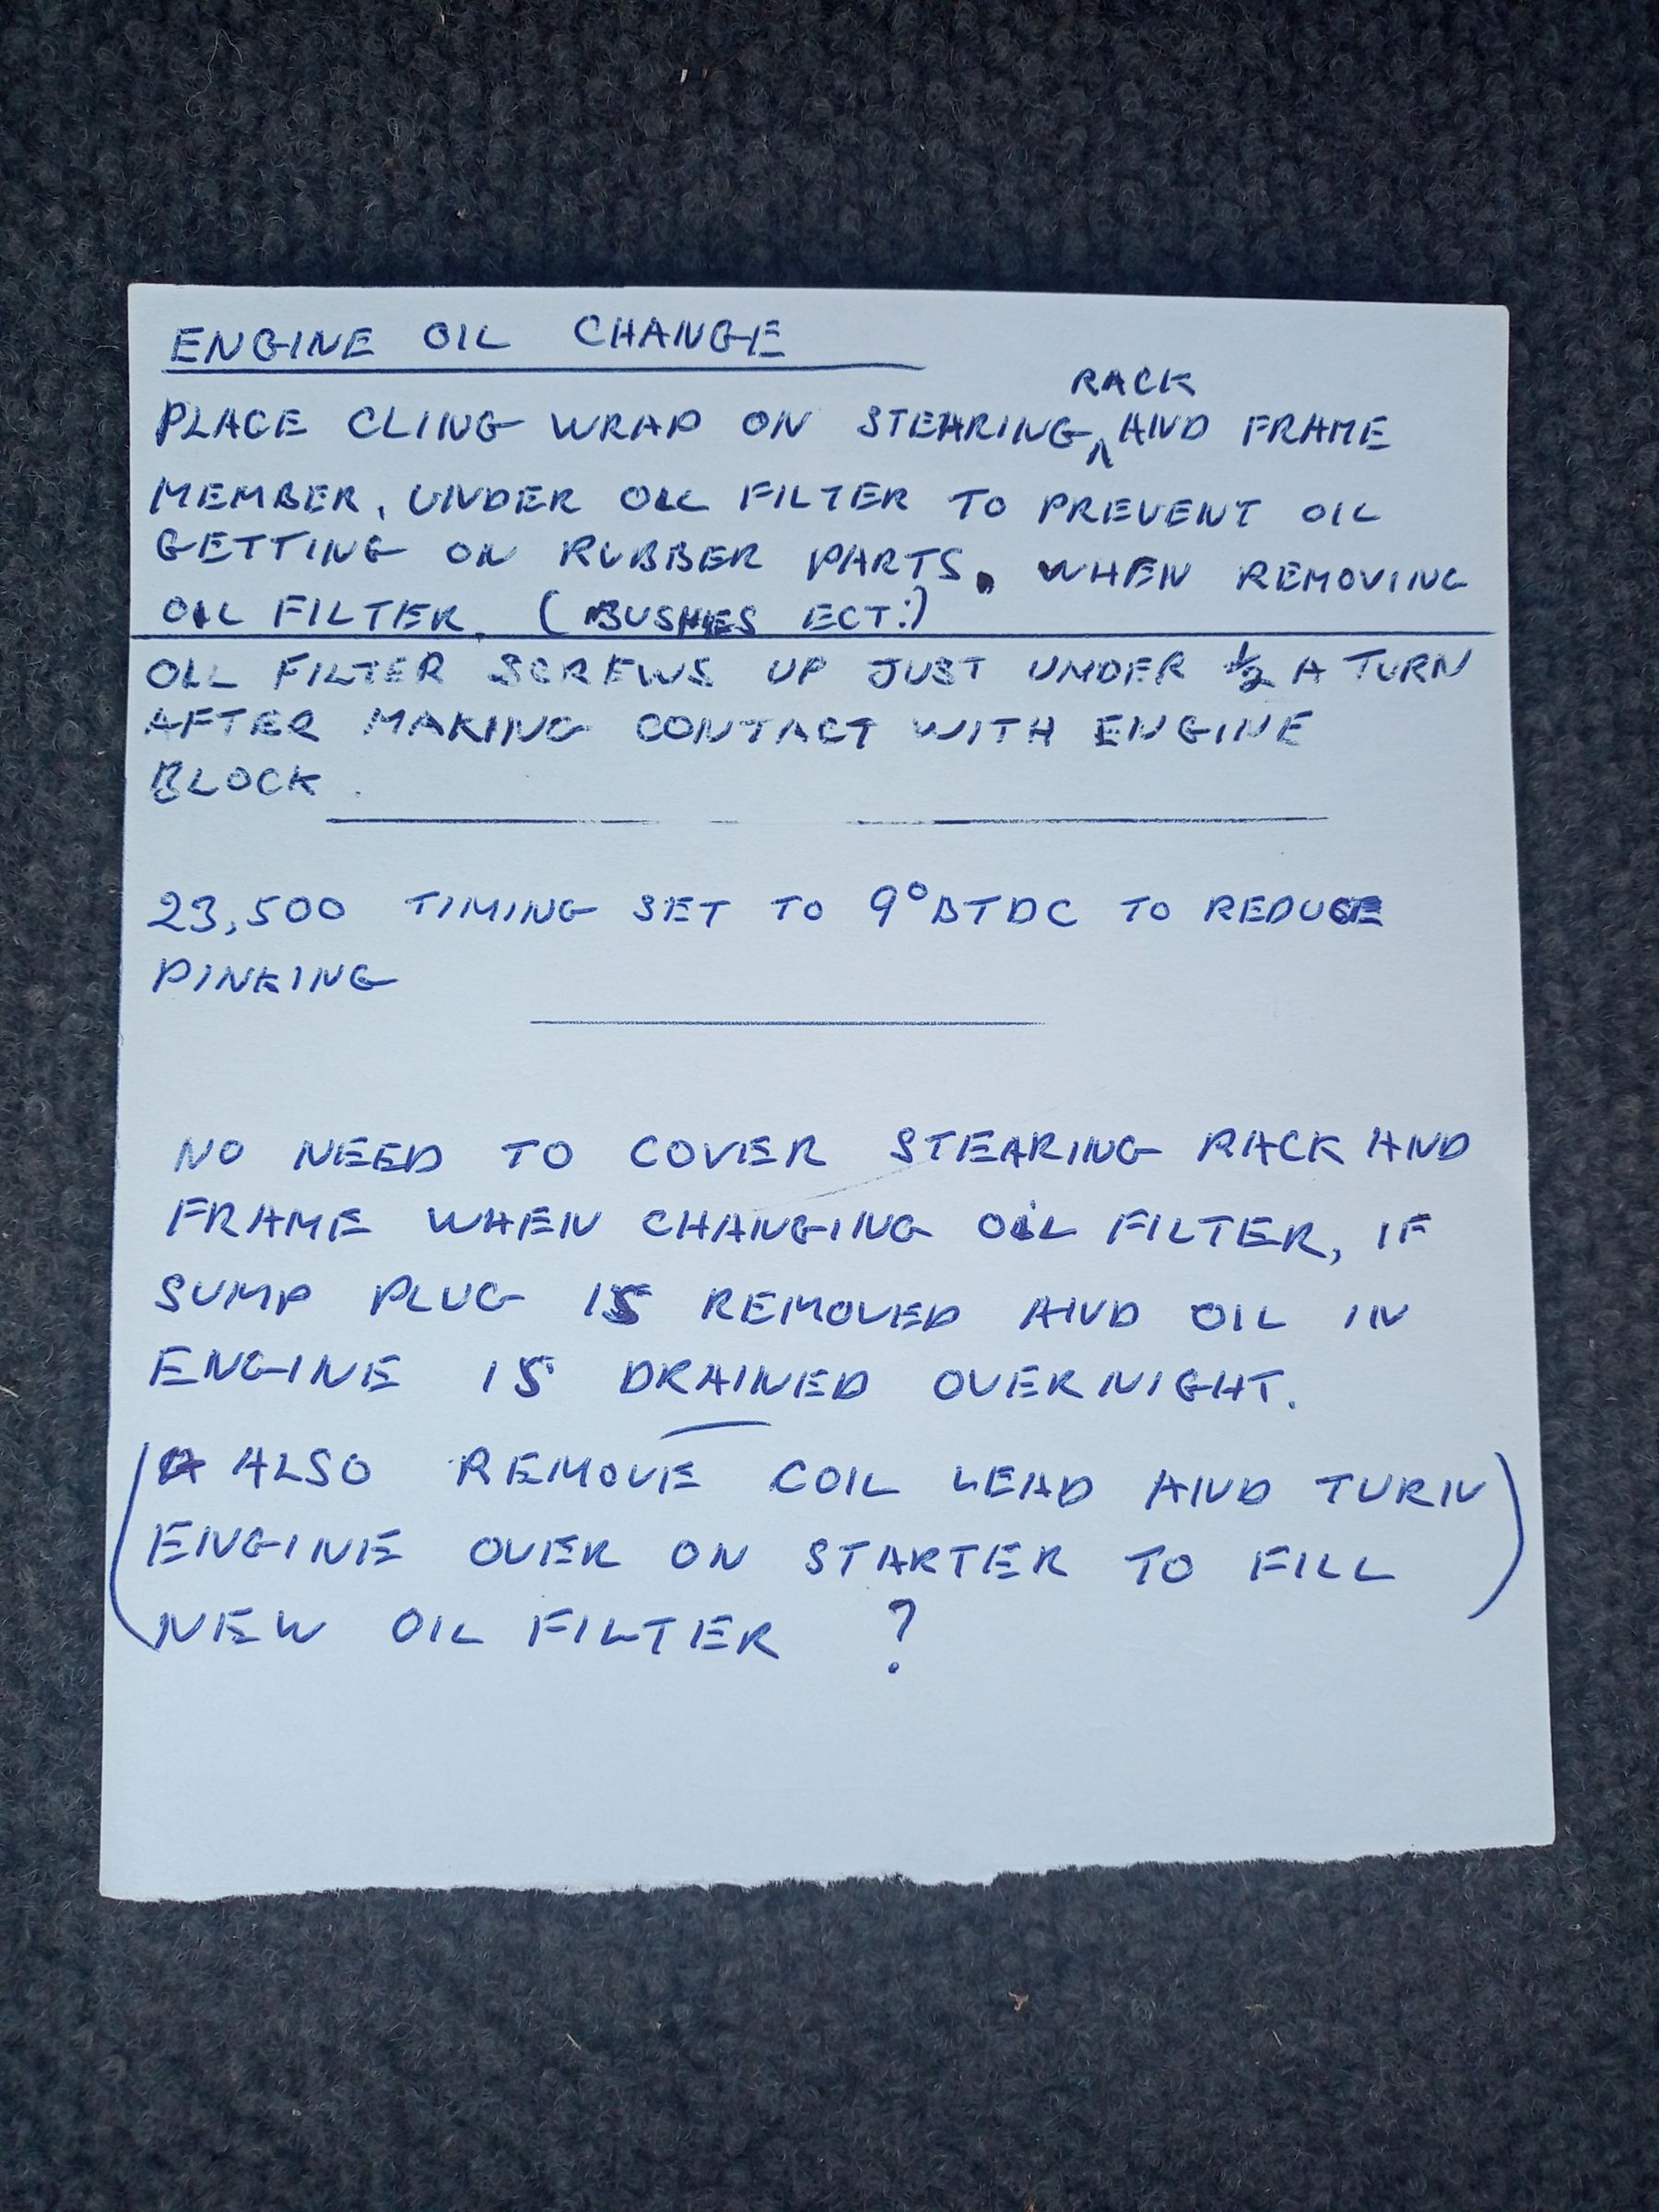 ENGINE OIL CHANGE
PLACE CLING WRAP ON STEARING RACK AND FRAME
MEMBER, UNDER OIL FILTER TO PREVENT OIL
GETTING ON RUBBER PARTS. WHEN REMOVING
OIL FILTER. (BUSHES ECT:)
OIL FILTER SCREWS UP JUST UNDER 1/2 A TURN
AFTER MAKING CONTACT WITH ENGINE
BLOCK.
23,500 TIMING SET TO 9° BTDC TO REDUCE
PINKING
NO NEED TO COVER STEARING RACK AND
FRAME WHEN CHANGING OIL FILTER, IF
SUMP PLUG IS REMOVED AND OIL IN
ENGINE IS DRAINED OVERNIGHT.
(ALSO REMOVE COIL LEAD AND TURN
ENGINE OVER ON STARTER TO FILL
NEW OIL FILTER ?)